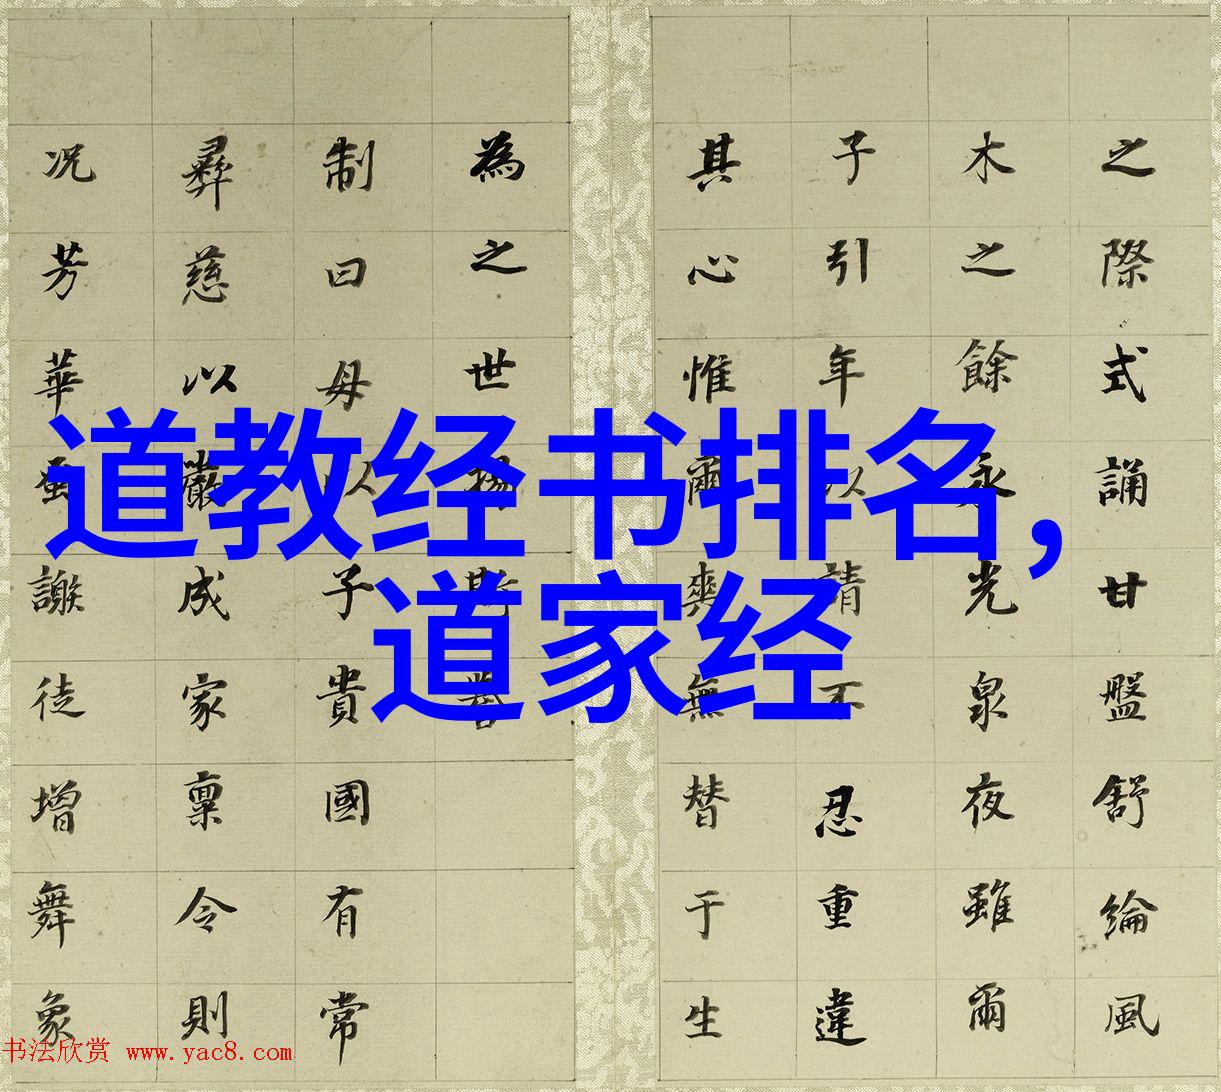 之際式誦甘盤舒綸風
木之餘永光泉夜雖爾
子引年以請不忍重違
其心惟爾爽無替于生
為之世揚斯
制曰母以子貴國有常
彝慈以嚴成家稟令則
况芳華蚤謝徒增舞象
道教经书排名,
道家经
书法欣赏 www.yac8.com